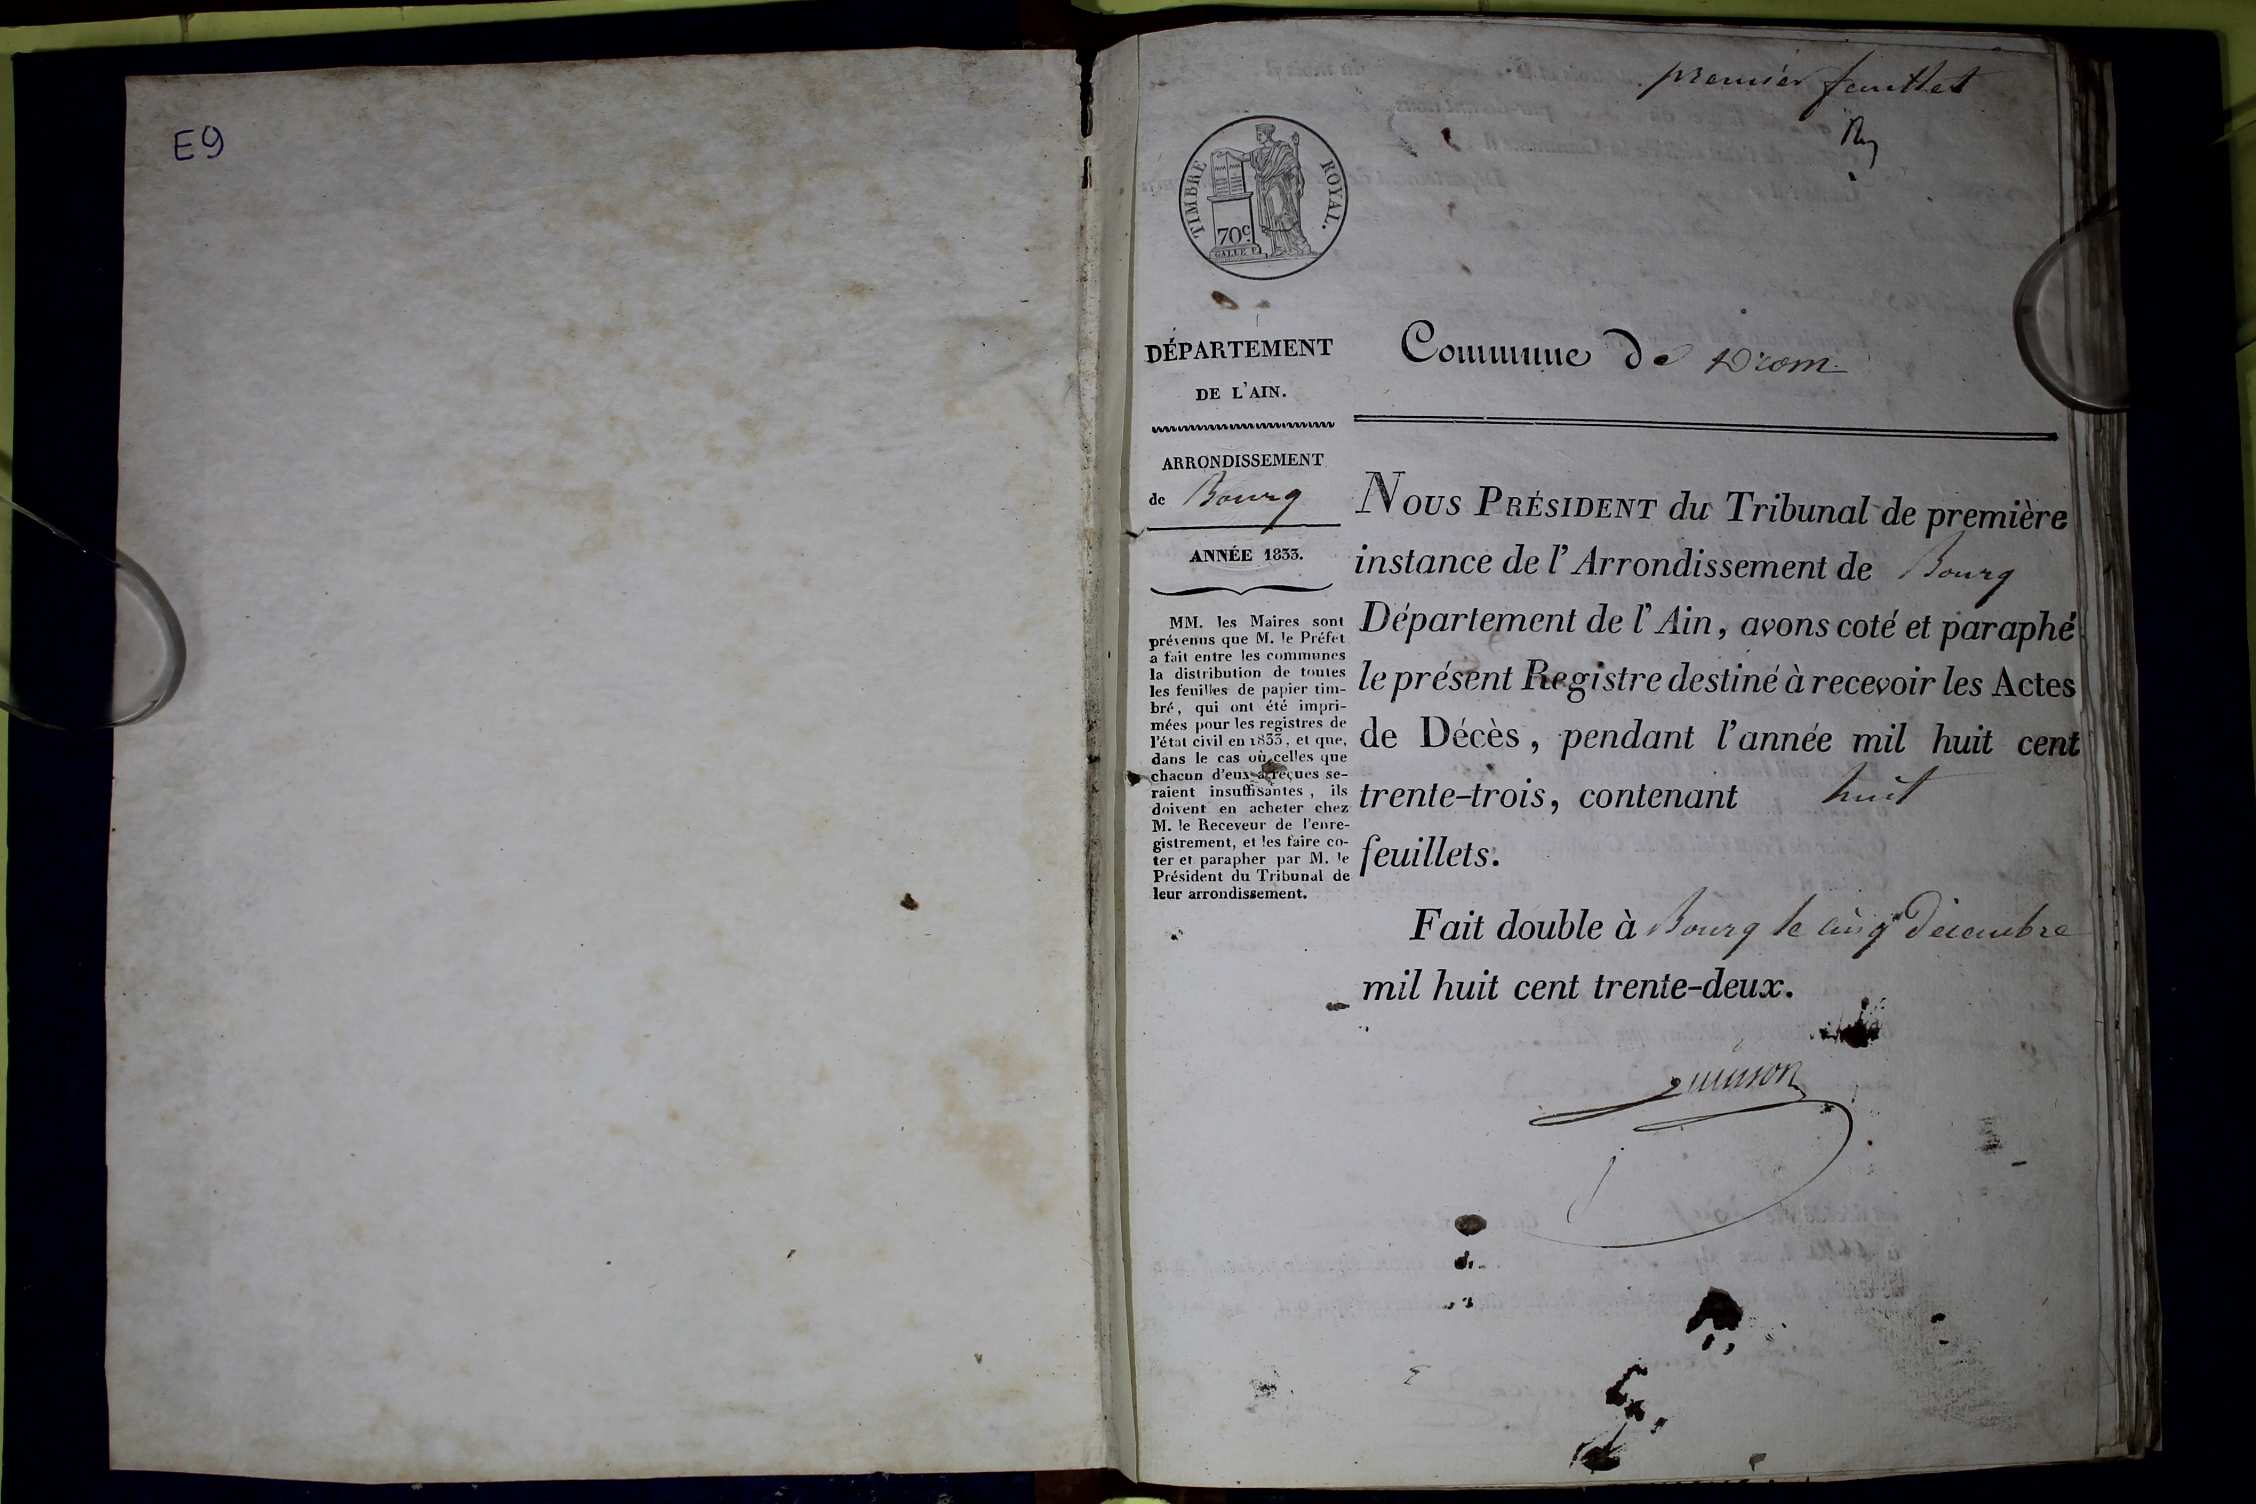 E9
premier feuillet
TIMBRE ROYAL.
70c.
GALLE F.
DÉPARTEMENT
DE L'AIN.
ARRONDISSEMENT
de Bourg
ANNÉE 1833.
MM. les Maires sont
prévenus que M. le Préfet
a fait entre les communes
la distribution de toutes
les feuilles de papier tim-
bré, qui ont été impri-
mées pour les registres de
l'état civil en 1833, et que,
dans le cas où celles que
chacun d'eux a reçues se-
raient insuffisantes, ils
doivent en acheter chez
M. le Receveur de l'enre-
gistrement, et les faire co-
ter et parapher par M. le
Président du Tribunal de
leur arrondissement.
Commune de Drom
NOUS PRÉSIDENT du Tribunal de première
instance de l'Arrondissement de Bourg
Département de l'Ain, avons coté et paraphé
le présent Registre destiné à recevoir les Actes
de Décès, pendant l'année mil huit cent
trente-trois, contenant huit
feuillets.
Fait double à Bourg le cinq décembre
mil huit cent trente-deux.